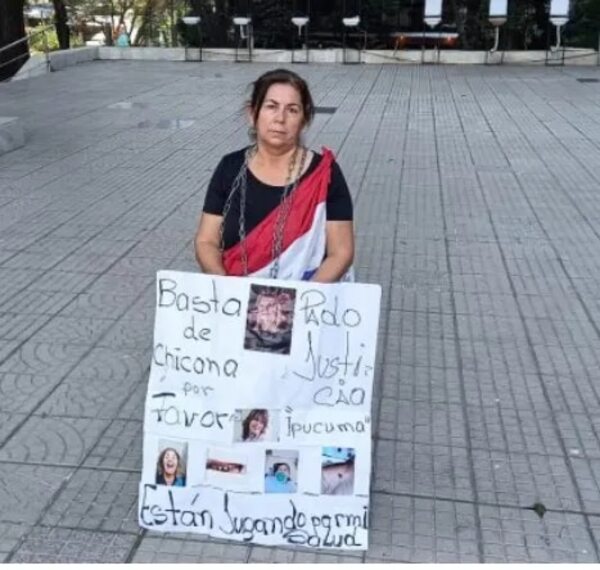 Basta Pido
de Justi-
Chicana CÃO
por
Favor "Ipucuma"
Están Jugando por mi
Salud